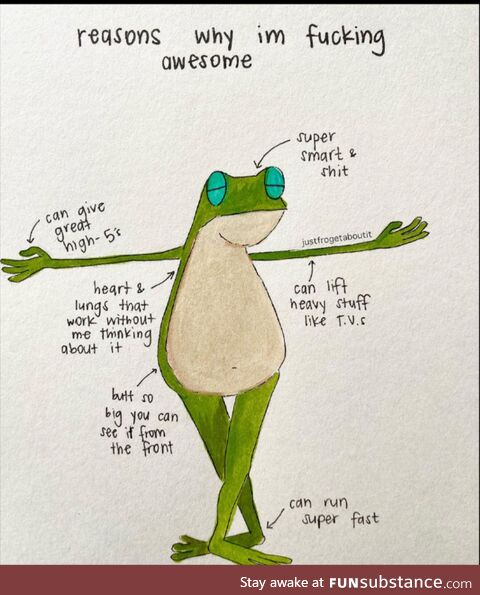 reasons why im fucking
awesome
super
smart &
shit
can give
great
high-5's
justfrogetaboutit
heart &
lungs that
work without
me thinking
about it
can lift
heavy stuff
like T.V.s
butt so
big you can
see it from
the front
can run
super fast
Stay awake at FUNsubstance.com